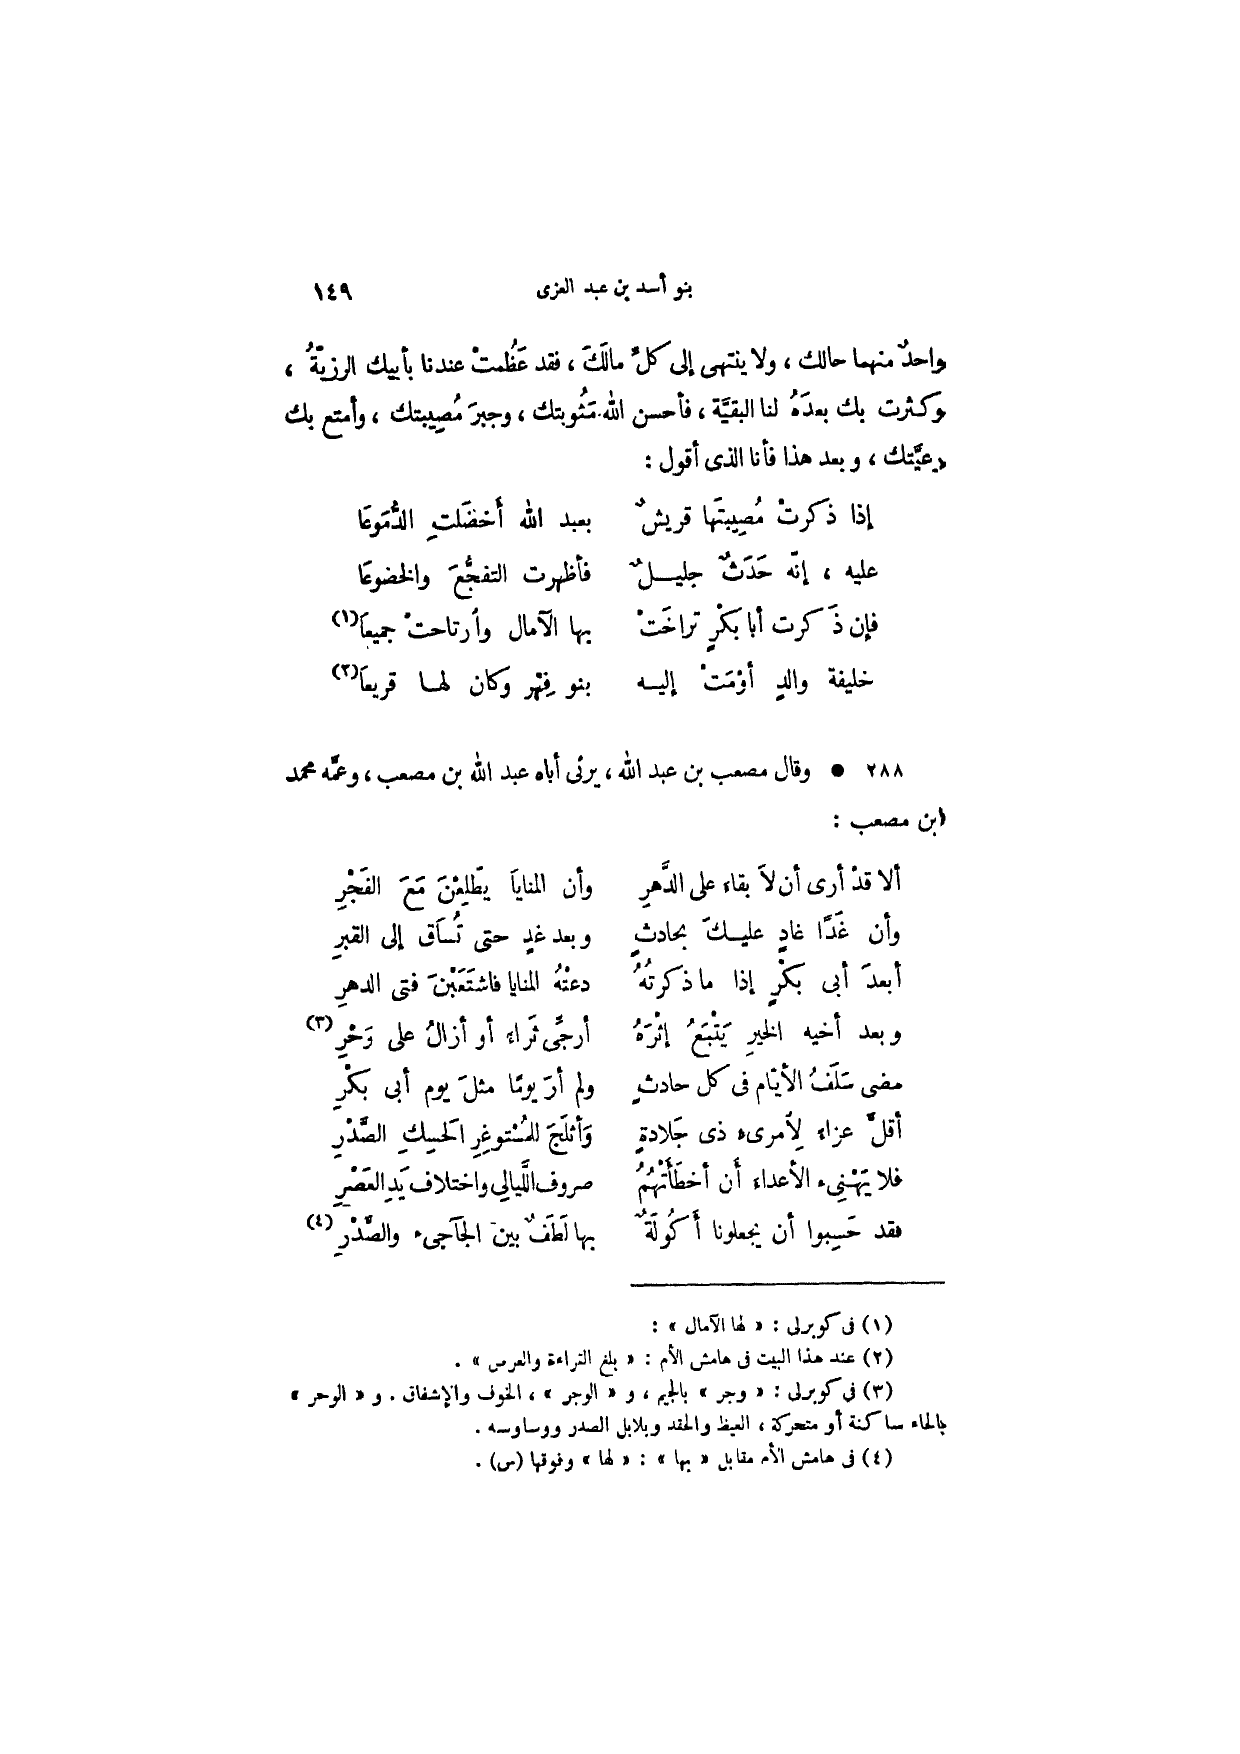 بنو أسد بن عبد العزى ١٤٩
واحدٌ منهما حالك ، ولا ينتهى إلى كلِّ مالَكَ ، فقد عَظُمتْ عندنا بأبيك الرزيّةُ ،
وكثرت بك بعدَهُ لنا البقيَّة ، فأحسن الله مَثُوبتك ، وجبرَ مُصِيبتك ، وأمتع بك
رعيَّتك ، وبعد هذا فأنا الذى أقول :
إذا ذكرتْ مُصِيبتَها قريشٌ بعبد الله أَخضَلتِ الدُّمَوعَا
عليه ، إنّه حَدَثٌ جليلٌ فأظهرت التفجُّعَ والخضوعَا
فإن ذَكرت أبا بكْرٍ تراخَتْ بها الآمال وأرتاحتْ جميعَا(١)
خليفة والدٍ أوْمَتْ إليه بنو فِهْرٍ وكان لها قريعَا(٢)
٢٨٨ ● وقال مصعب بن عبد الله ، يرثى أباه عبد الله بن مصعب ، وعمَّه محمد
ابن مصعب :
ألا قدْ أرى أن لاَ بقاء على الدَّهرِ وأن المناياَ يطّلِعْنَ مَعَ الفَجْرِ
وأن غَدًا غادٍ عليكَ بحادثٍ وبعد غدٍ حتى تُسَاق إلى القبرِ
أبعدَ أبى بكْرٍ إذا ما ذكرتُهُ دعتْهُ المنايا فاشتَعَبْنَ فتى الدهرِ
وبعد أخيه الخيرِ يَتْبَعُ إثْرَهُ أرجِّى ثَراءً أو أزالُ على وَحْرِ(٣)
مضى سَلَفُ الأيّام فى كل حادثٍ ولم أرَ يومًا مثلَ يوم أبى بكْرِ
أقلَّ عزاء لِأمرىء ذى جَلادةٍ وَأثلَجَ للمُسْتوغِرِ الحَسِكِ الصَّدْرِ
فلا يَهْنِىء الأعداء أَن أخطَأَتْهُمُ صروف اللَّيالِى واختلاف يَدِ العَصْرِ
فقد حَسِبوا أن يجعلونا أَكُولَةً بها لَطَفٌ بينَ الجآجىء والصَّدْرِ(٤)
(١) فى كوبرلى : « لها الآمال » :
(٢) عند هذا البيت فى هامش الأم : « بلغ القراءة والعرض » .
(٣) فى كوبرلى : « وجر » بالجيم ، و « الوجر » ، الخوف والإشفاق . و « الوحر »
بالحاء ساكنة أو متحركة ، الغيظ والحقد وبلابل الصدر ووساوسه .
(٤) فى هامش الأم مقابل « بها » : « لها » وفوقها (س) .